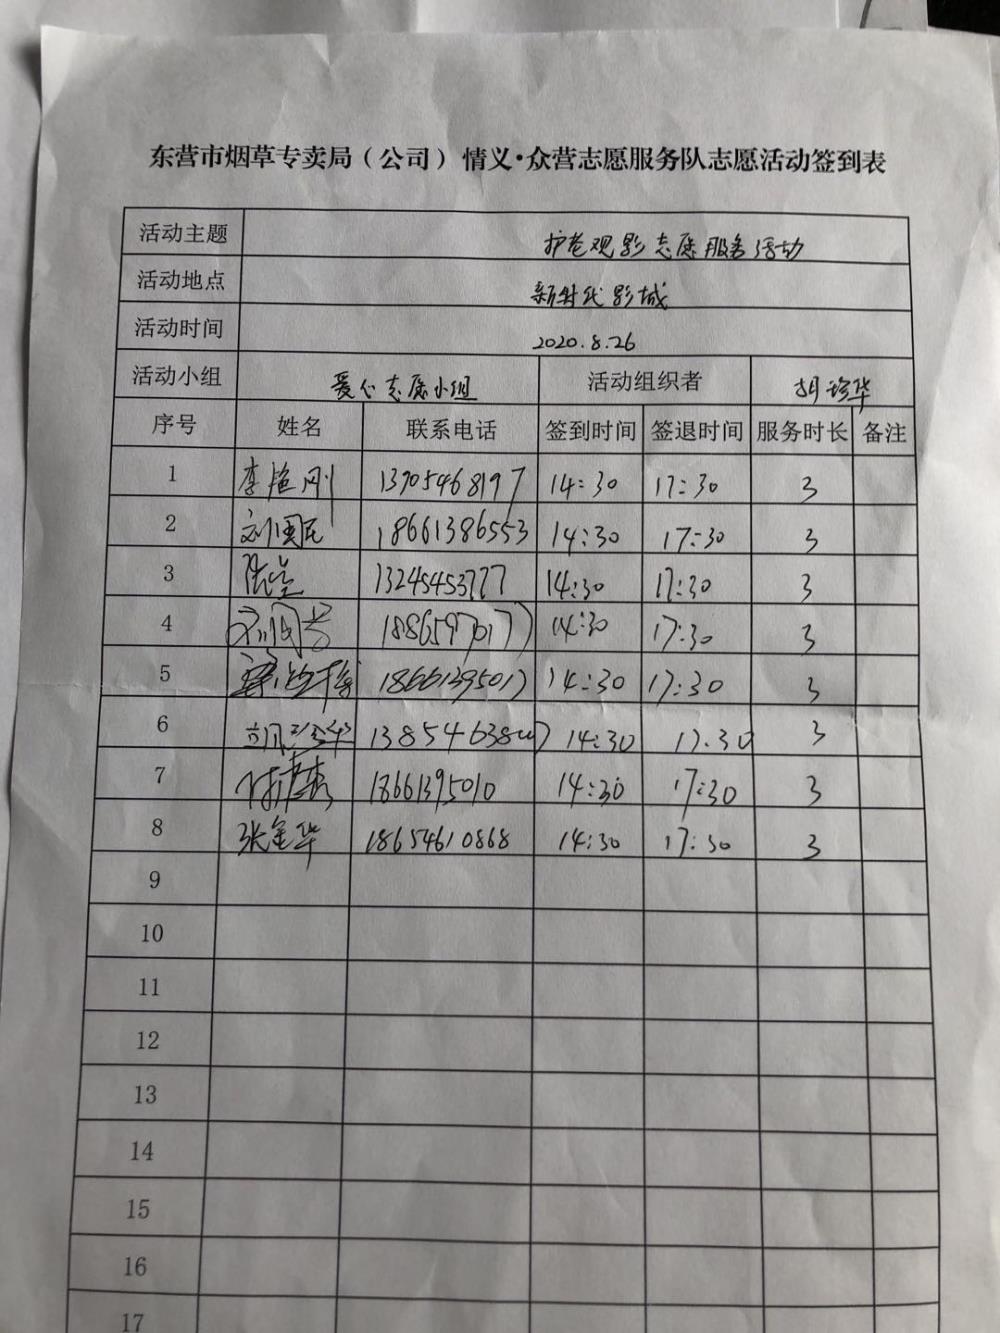 东营市烟草专卖局（公司）情义·众营志愿服务队志愿活动签到表
活动主题 护老观影志愿服务活动
活动地点 新时代影城
活动时间 2020.8.26
活动小组 爱心志愿小组 活动组织者 胡珍华
序号 姓名 联系电话 签到时间 签退时间 服务时长 备注
1 李 刚 13905468197 14:30 17:30 3
2 刘国民 18661386553 14:30 17:30 3
3 13245453777 14:30 17:30 3
4 14:30 17:30 3
5 14:30 17:30 3
6 14:30 17:30 3
7 18661395010 14:30 17:30 3
8 张金华 18654610868 14:30 17:30 3
9
10
11
12
13
14
15
16
17